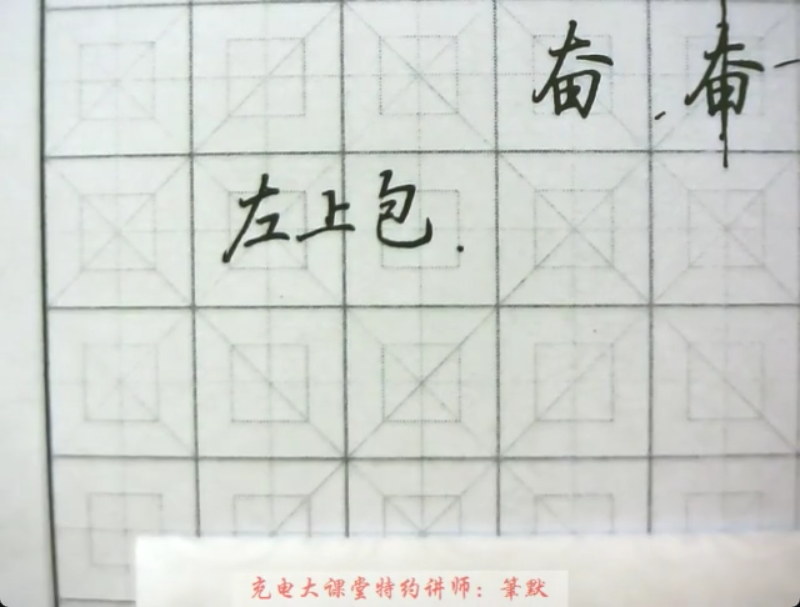 奋
左上包.
充电大课堂特约讲师：筆默